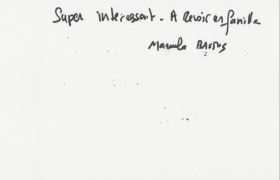 Super interessant. A revoir en famille
Manuela